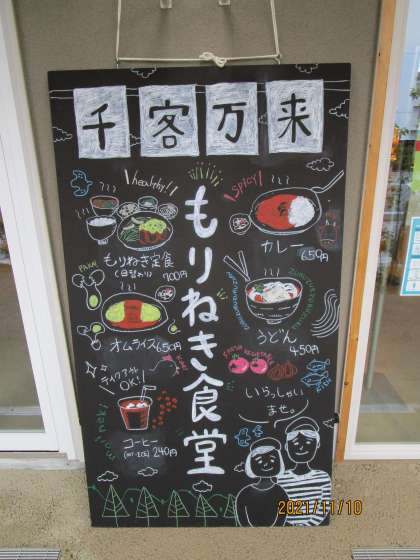 千客万来
healthy!
SPICY!
もりねぎ食堂
もりねぎ定食
(日替わり) 700円
カレー
650円
オムライス 650円
うどん
450円
FRESH VEGETABLE
テイクアウト
OK!
いらっしゃい
ませ。
コーヒー
(HOT・ICE) 240円
2021/11/10